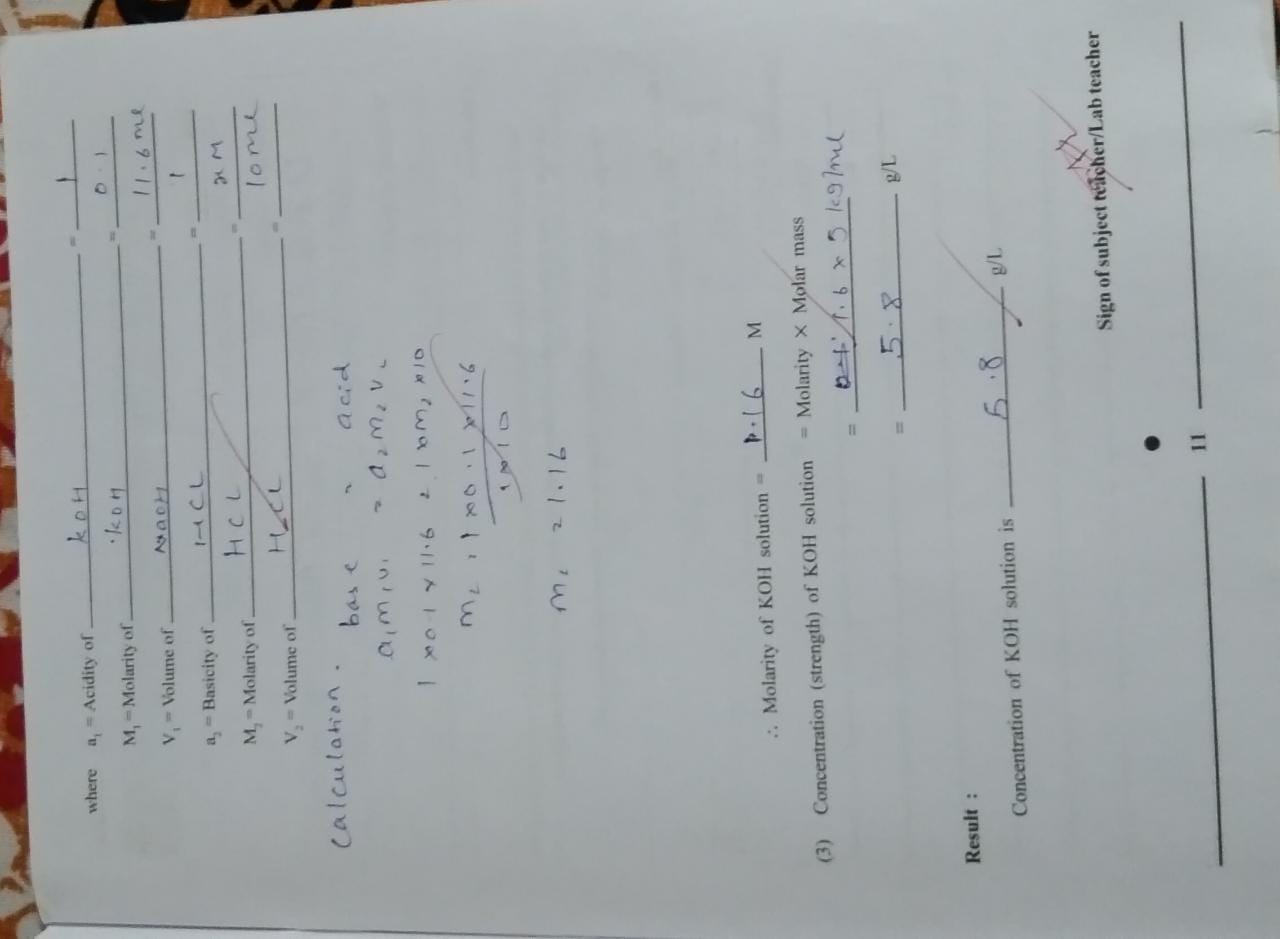 where a₁ = Acidity of KOH = 1
M₁ = Molarity of KOH = 0.1
V₁ = Volume of NaOH = 11.6 ml
a₂ = Basicity of HCL = 1
M₂ = Molarity of HCL = xM
V₂ = Volume of HCL = 10 ml
Calculation. base = acid
a₁m₁v₁ = a₂m₂v₂
1 x 0.1 x 11.6 = 1 x m₂ x 10
m₂ = 1 x 0.1 x 11.6
1 x 10
m₂ = 1.16
∴ Molarity of KOH solution = .16 M
(3) Concentration (strength) of KOH solution = Molarity × Molar mass
= 1.6 x 5 kg/ml
= 5.8 g/L
Result :
Concentration of KOH solution is 5.8 g/L
Sign of subject teacher/Lab teacher
11